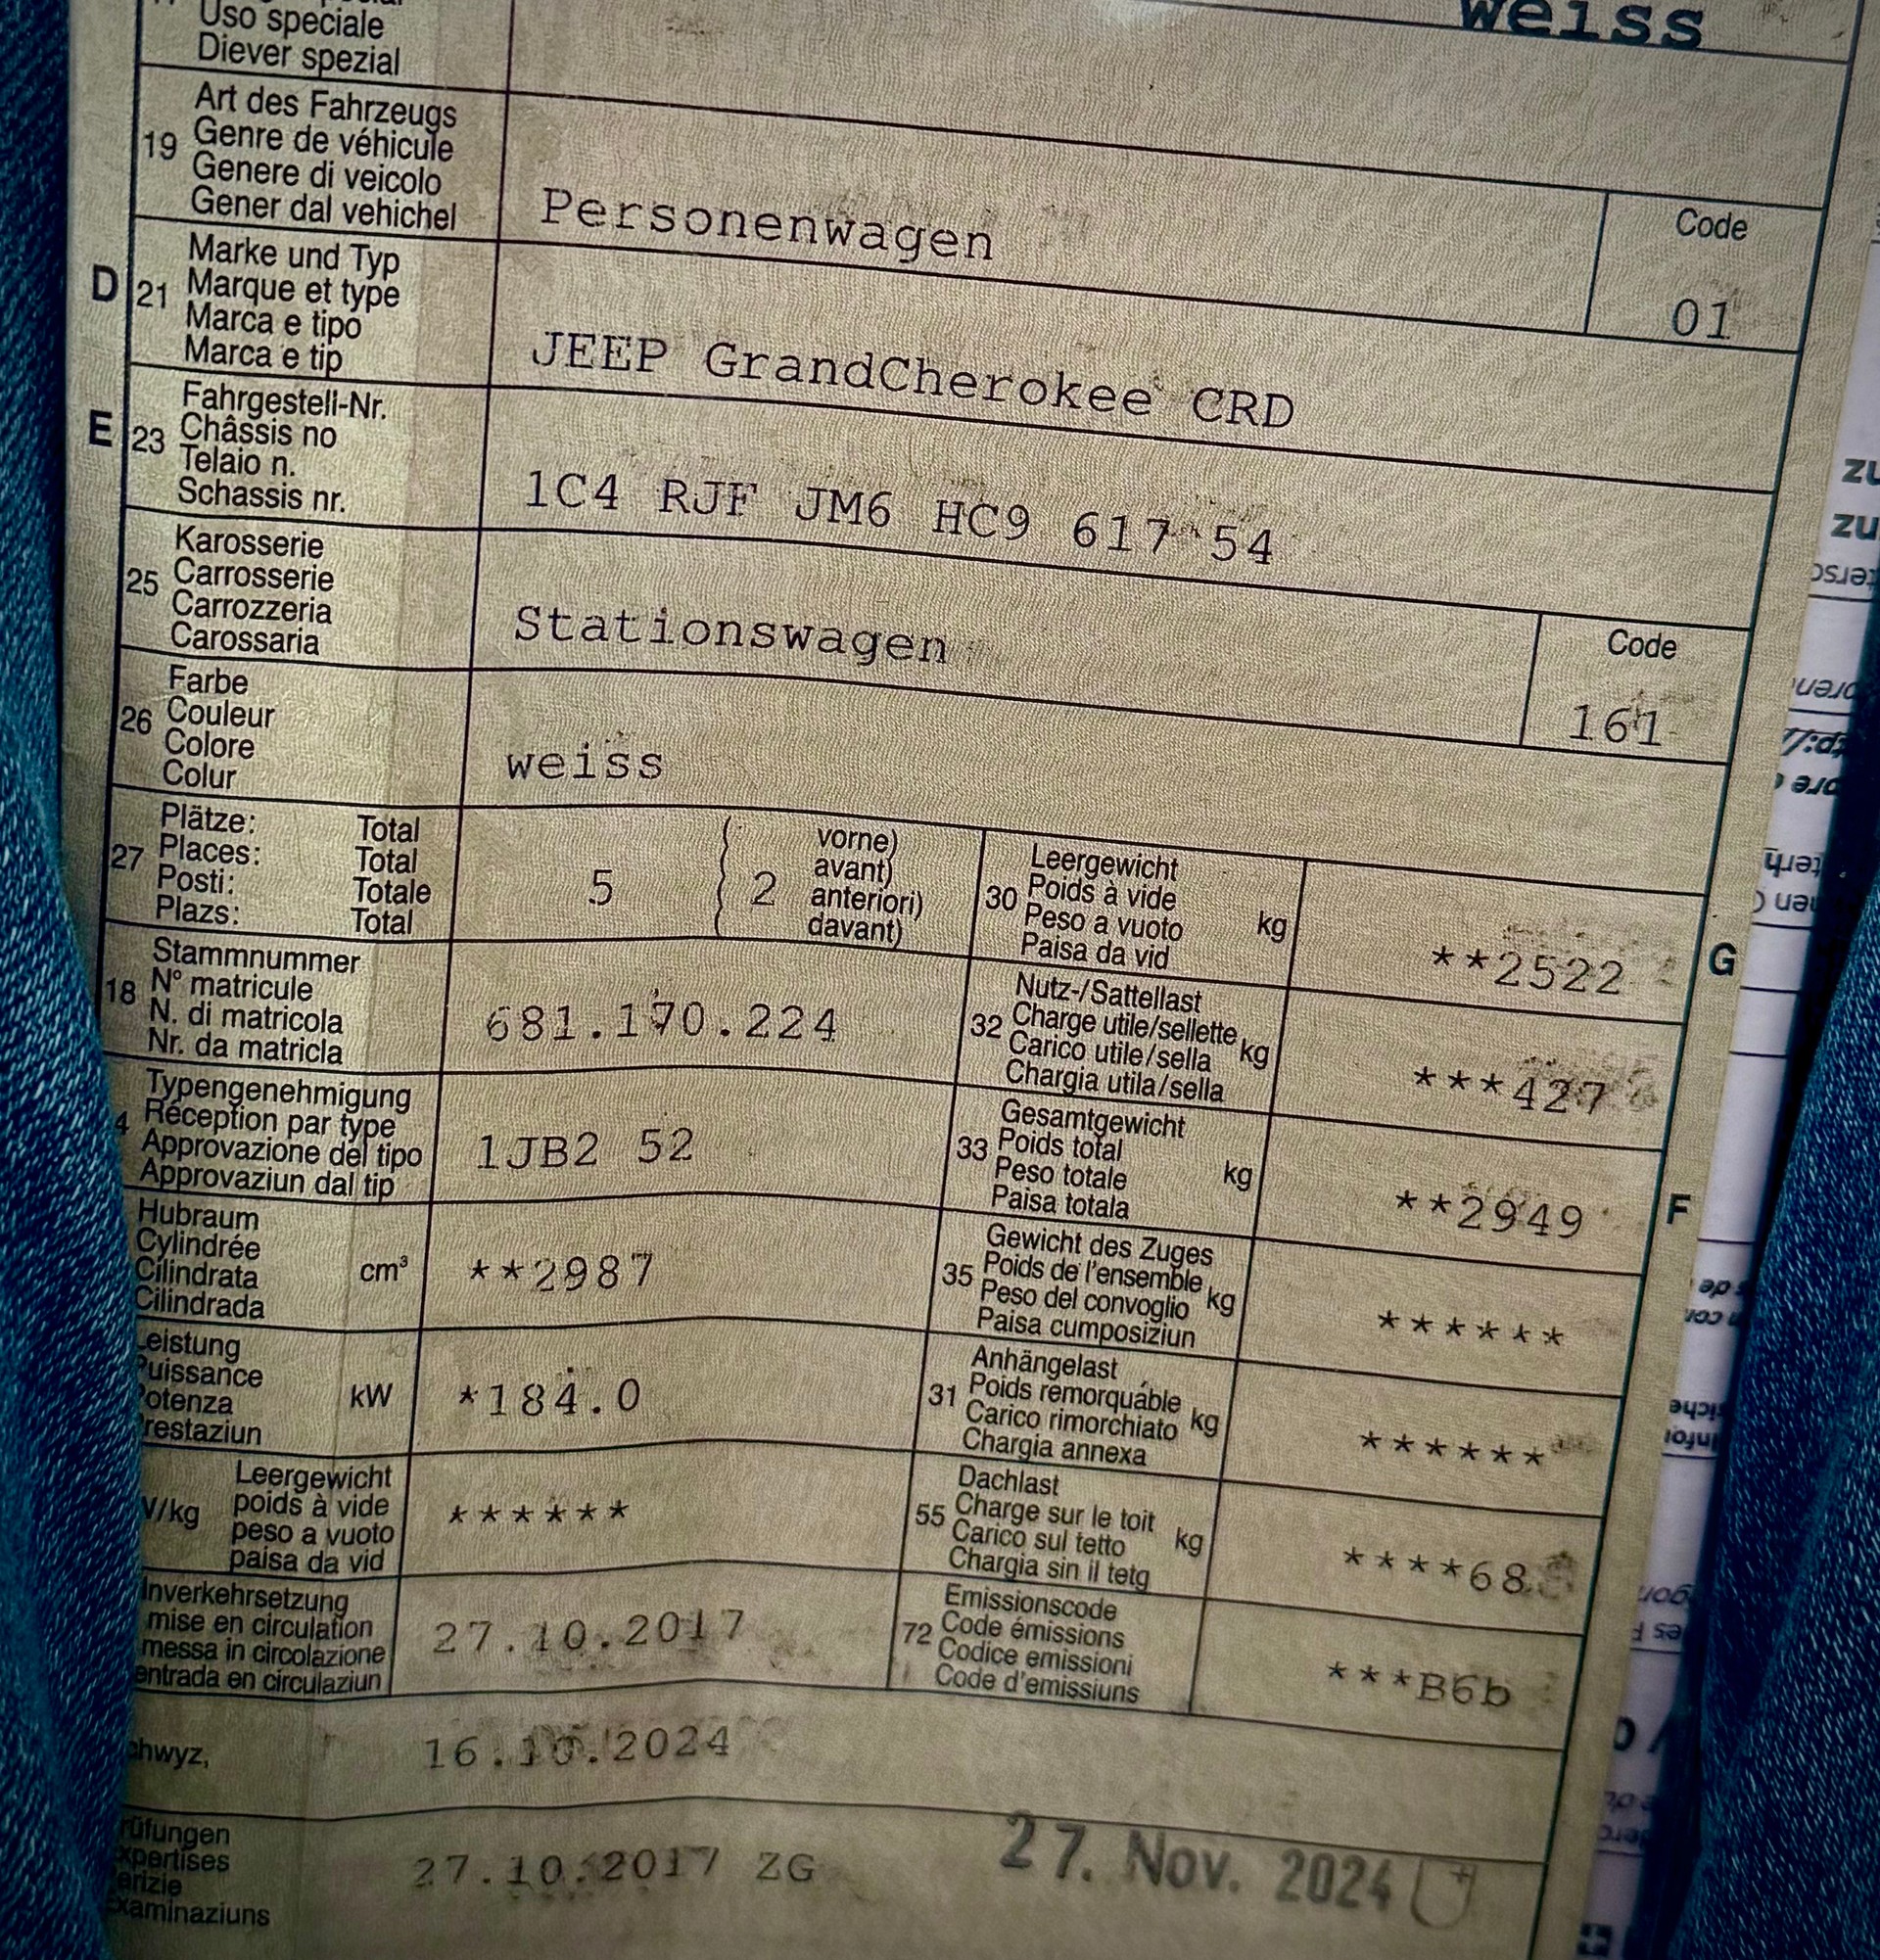 weiss
Uso speciale
Diever spezial
19
Art des Fahrzeugs
Genre de véhicule
Genere di veicolo
Gener dal vehichel
Personenwagen
Code
01
D 21
Marke und Typ
Marque et type
Marca e tipo
Marca e tip
JEEP GrandCherokee CRD
E 23
Fahrgestell-Nr.
Châssis no
Telaio n.
Schassis nr.
1C4 RJF JM6 HC9 617 54
25
Karosserie
Carrosserie
Carrozzeria
Carossaria
Stationswagen
Code
161
26
Farbe
Couleur
Colore
Colur
weiss
27
Plätze: Total
Places: Total
Posti: Totale
Plazs: Total
5
2
vorne)
avant)
anteriori)
davant)
30
Leergewicht
Poids à vide
Peso a vuoto
Paisa da vid
kg
**2522
G
18
Stammnummer
N° matricule
N. di matricola
Nr. da matricla
681.170.224
32
Nutz-/Sattellast
Charge utile/sellette
Carico utile/sella
Chargia utila/sella
kg
***427
4
Typengenehmigung
Réception par type
Approvazione del tipo
Approvaziun dal tip
1JB2 52
33
Gesamtgewicht
Poids total
Peso totale
Paisa totala
kg
**2949
F
Hubraum
Cylindrée
Cilindrata
Cilindrada
cm³
**2987
35
Gewicht des Zuges
Poids de l'ensemble
Peso del convoglio
Paisa cumposiziun
kg
******
Leistung
Puissance
Potenza
restaziun
kW
*184.0
31
Anhängelast
Poids remorquable
Carico rimorchiato
Chargia annexa
kg
******
/kg
Leergewicht
poids à vide
peso a vuoto
paisa da vid
******
55
Dachlast
Charge sur le toit
Carico sul tetto
Chargia sin il tetg
kg
****68
Inverkehrsetzung
mise en circulation
messa in circolazione
entrada en circulaziun
27.10.2017
72
Emissionscode
Code émissions
Codice emissioni
Code d'emissiuns
***B6b
hwyz,
16.10.2024
rüfungen
xpertises
erizie
xaminaziuns
27.10.2017 ZG
27. Nov. 2024